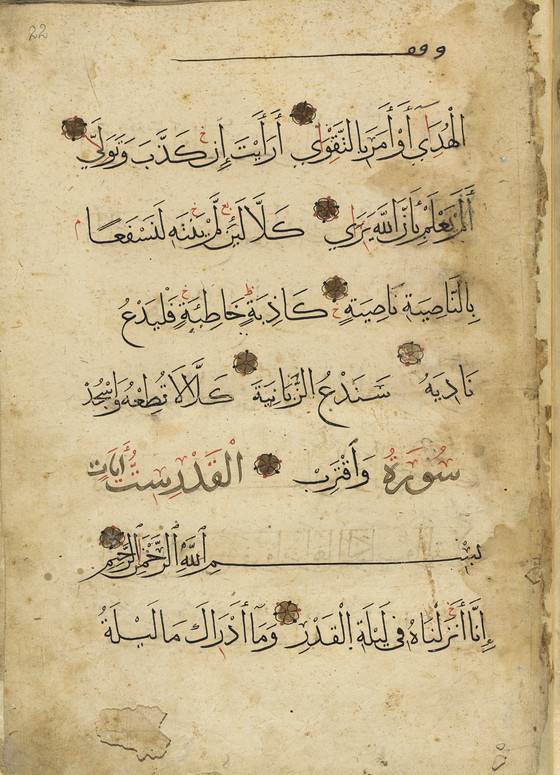 22
الْهُدَىٰ أَوْ أَمَرَ بِالتَّقْوَىٰ أَرَأَيْتَ إِن كَذَّبَ وَتَوَلَّىٰ
أَلَمْ يَعْلَمْ بِأَنَّ اللَّهَ يَرَىٰ كَلَّا لَئِن لَّمْ يَنتَهِ لَنَسْفَعًا
بِالنَّاصِيَةِ نَاصِيَةٍ كَاذِبَةٍ خَاطِئَةٍ فَلْيَدْعُ
نَادِيَهُ سَنَدْعُ الزَّبَانِيَةَ كَلَّا لَا تُطِعْهُ وَاسْجُدْ
وَاقْتَرِبْ سُورَةُ الْقَدْرِ سِتُّ آيَاتٍ
بِسْمِ اللَّهِ الرَّحْمَٰنِ الرَّحِيمِ
إِنَّا أَنزَلْنَاهُ فِي لَيْلَةِ الْقَدْرِ وَمَا أَدْرَاكَ مَا لَيْلَةُ